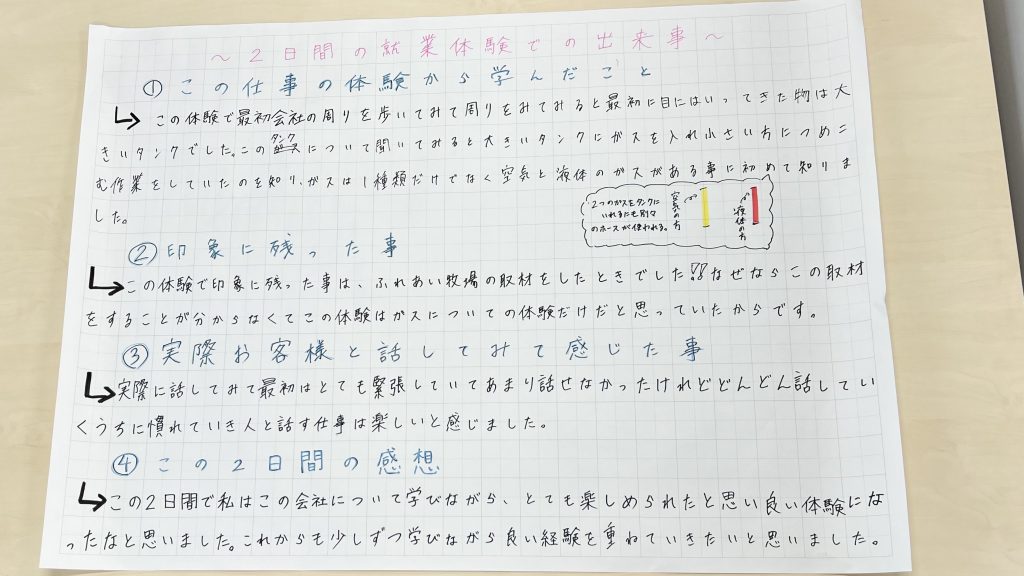 ～2日間の就業体験での出来事～
①この仕事の体験から学んだこと
この体験で最初会社の周りを歩いてみて周りをみてみると最初に目にはいってきた物は大
きいタンクでした。このタンクについて聞いてみると大きいタンクにガスを入れ小さい方につめこ
む作業をしていたのを知り、ガスは1種類だけでなく空気と液体のガスがある事に初めて知りま
した。
2つのガスをタンクに
いれるにも別々
のホースが使われる。
空気の方
液体の方
②印象に残った事
この体験で印象に残った事は、ふれあい牧場の取材をしたときでした!!なぜならこの取材
をすることが分からなくてこの体験はガスについての体験だけだと思っていたからです。
③実際お客様と話してみて感じた事
実際に話してみて最初はとても緊張していてあまり話せなかったけれどどんどん話してい
くうちに慣れていき人と話す仕事は楽しいと感じました。
④この2日間の感想
この2日間で私はこの会社について学びながら、とても楽しめられたと思い良い体験にな
ったなと思いました。これからも少しずつ学びながら良い経験を重ねていきたいと思いました。